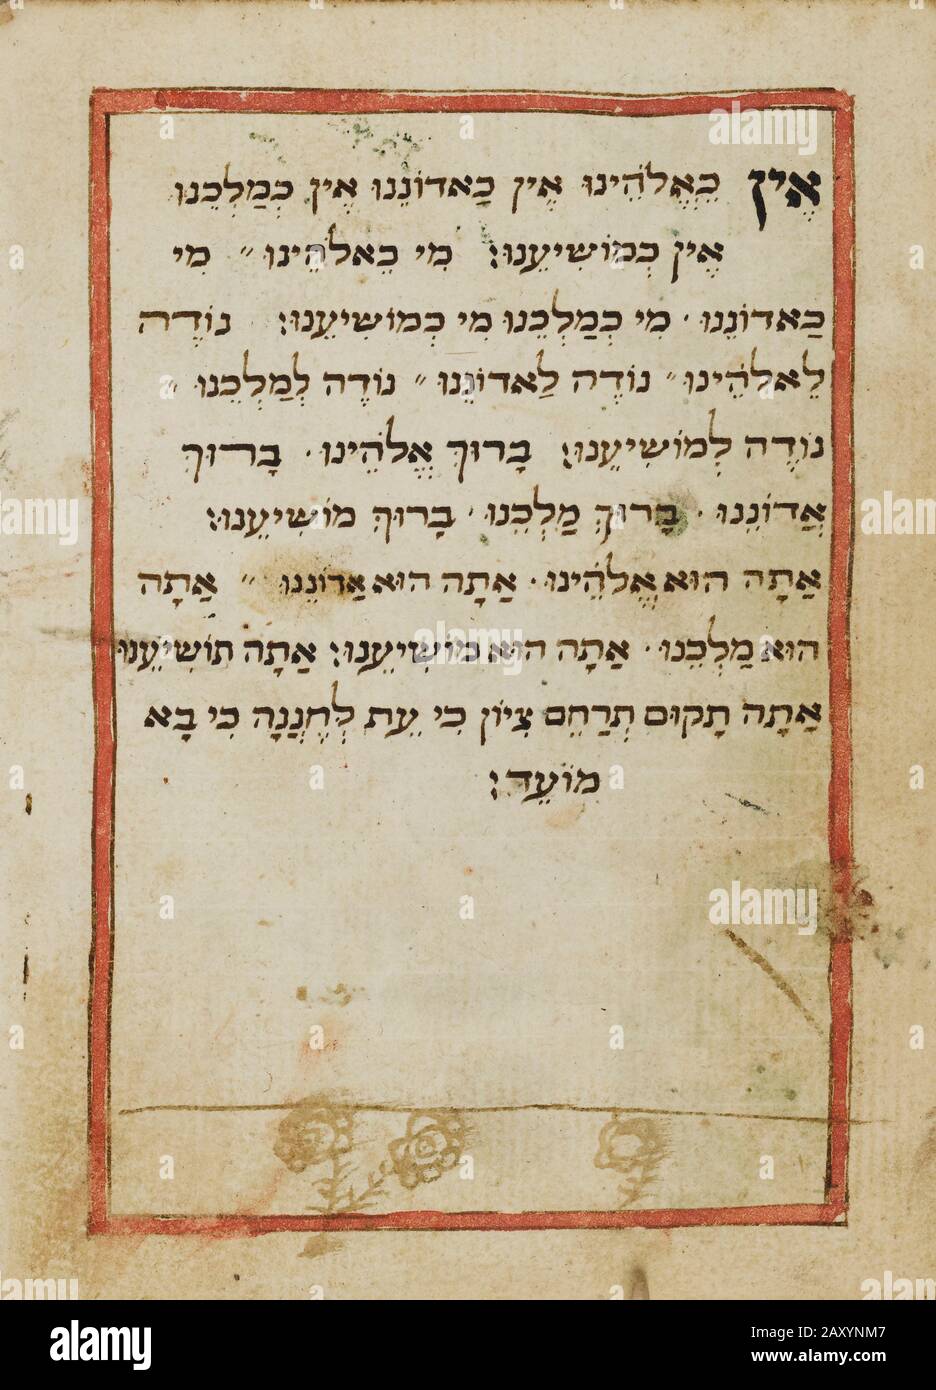 אֵין כֵּאֱלֹהֵינוּ אֵין כַּאדוֹנֵנוּ אֵין כְּמַלְכֵּנוּ
אֵין כְּמוֹשִׁיעֵנוּ׃ מִי כֵאלֹהֵינוּ ״ מִי
כַאדוֹנֵנוּ · מִי כְמַלְכֵּנוּ מִי כְמוֹשִׁיעֵנוּ׃ נוֹדֶה
לֵאלֹהֵינוּ ״ נוֹדֶה לַאדוֹנֵנוּ ״ נוֹדֶה לְמַלְכֵּנוּ ״
נוֹדֶה לְמוֹשִׁיעֵנוּ׃ בָּרוּךְ אֱלֹהֵינוּ · בָּרוּךְ
אֲדוֹנֵנוּ · בָּרוּךְ מַלְכֵּנוּ · בָּרוּךְ מוֹשִׁיעֵנוּ׃
אַתָּה הוּא אֱלֹהֵינוּ · אַתָּה הוּא אֲדוֹנֵנוּ ״ אַתָּה
הוּא מַלְכֵּנוּ · אַתָּה הוּא מוֹשִׁיעֵנוּ׃ אַתָּה תוֹשִׁיעֵנוּ
אַתָּה תָקוּם תְּרַחֵם צִיּוֹן כִּי עֵת לְחֶנְנָהּ כִּי בָא
מוֹעֵד׃
alamy
alamy
alamy
a
alamy
Image ID: 2AXYNM7
www.alamy.com